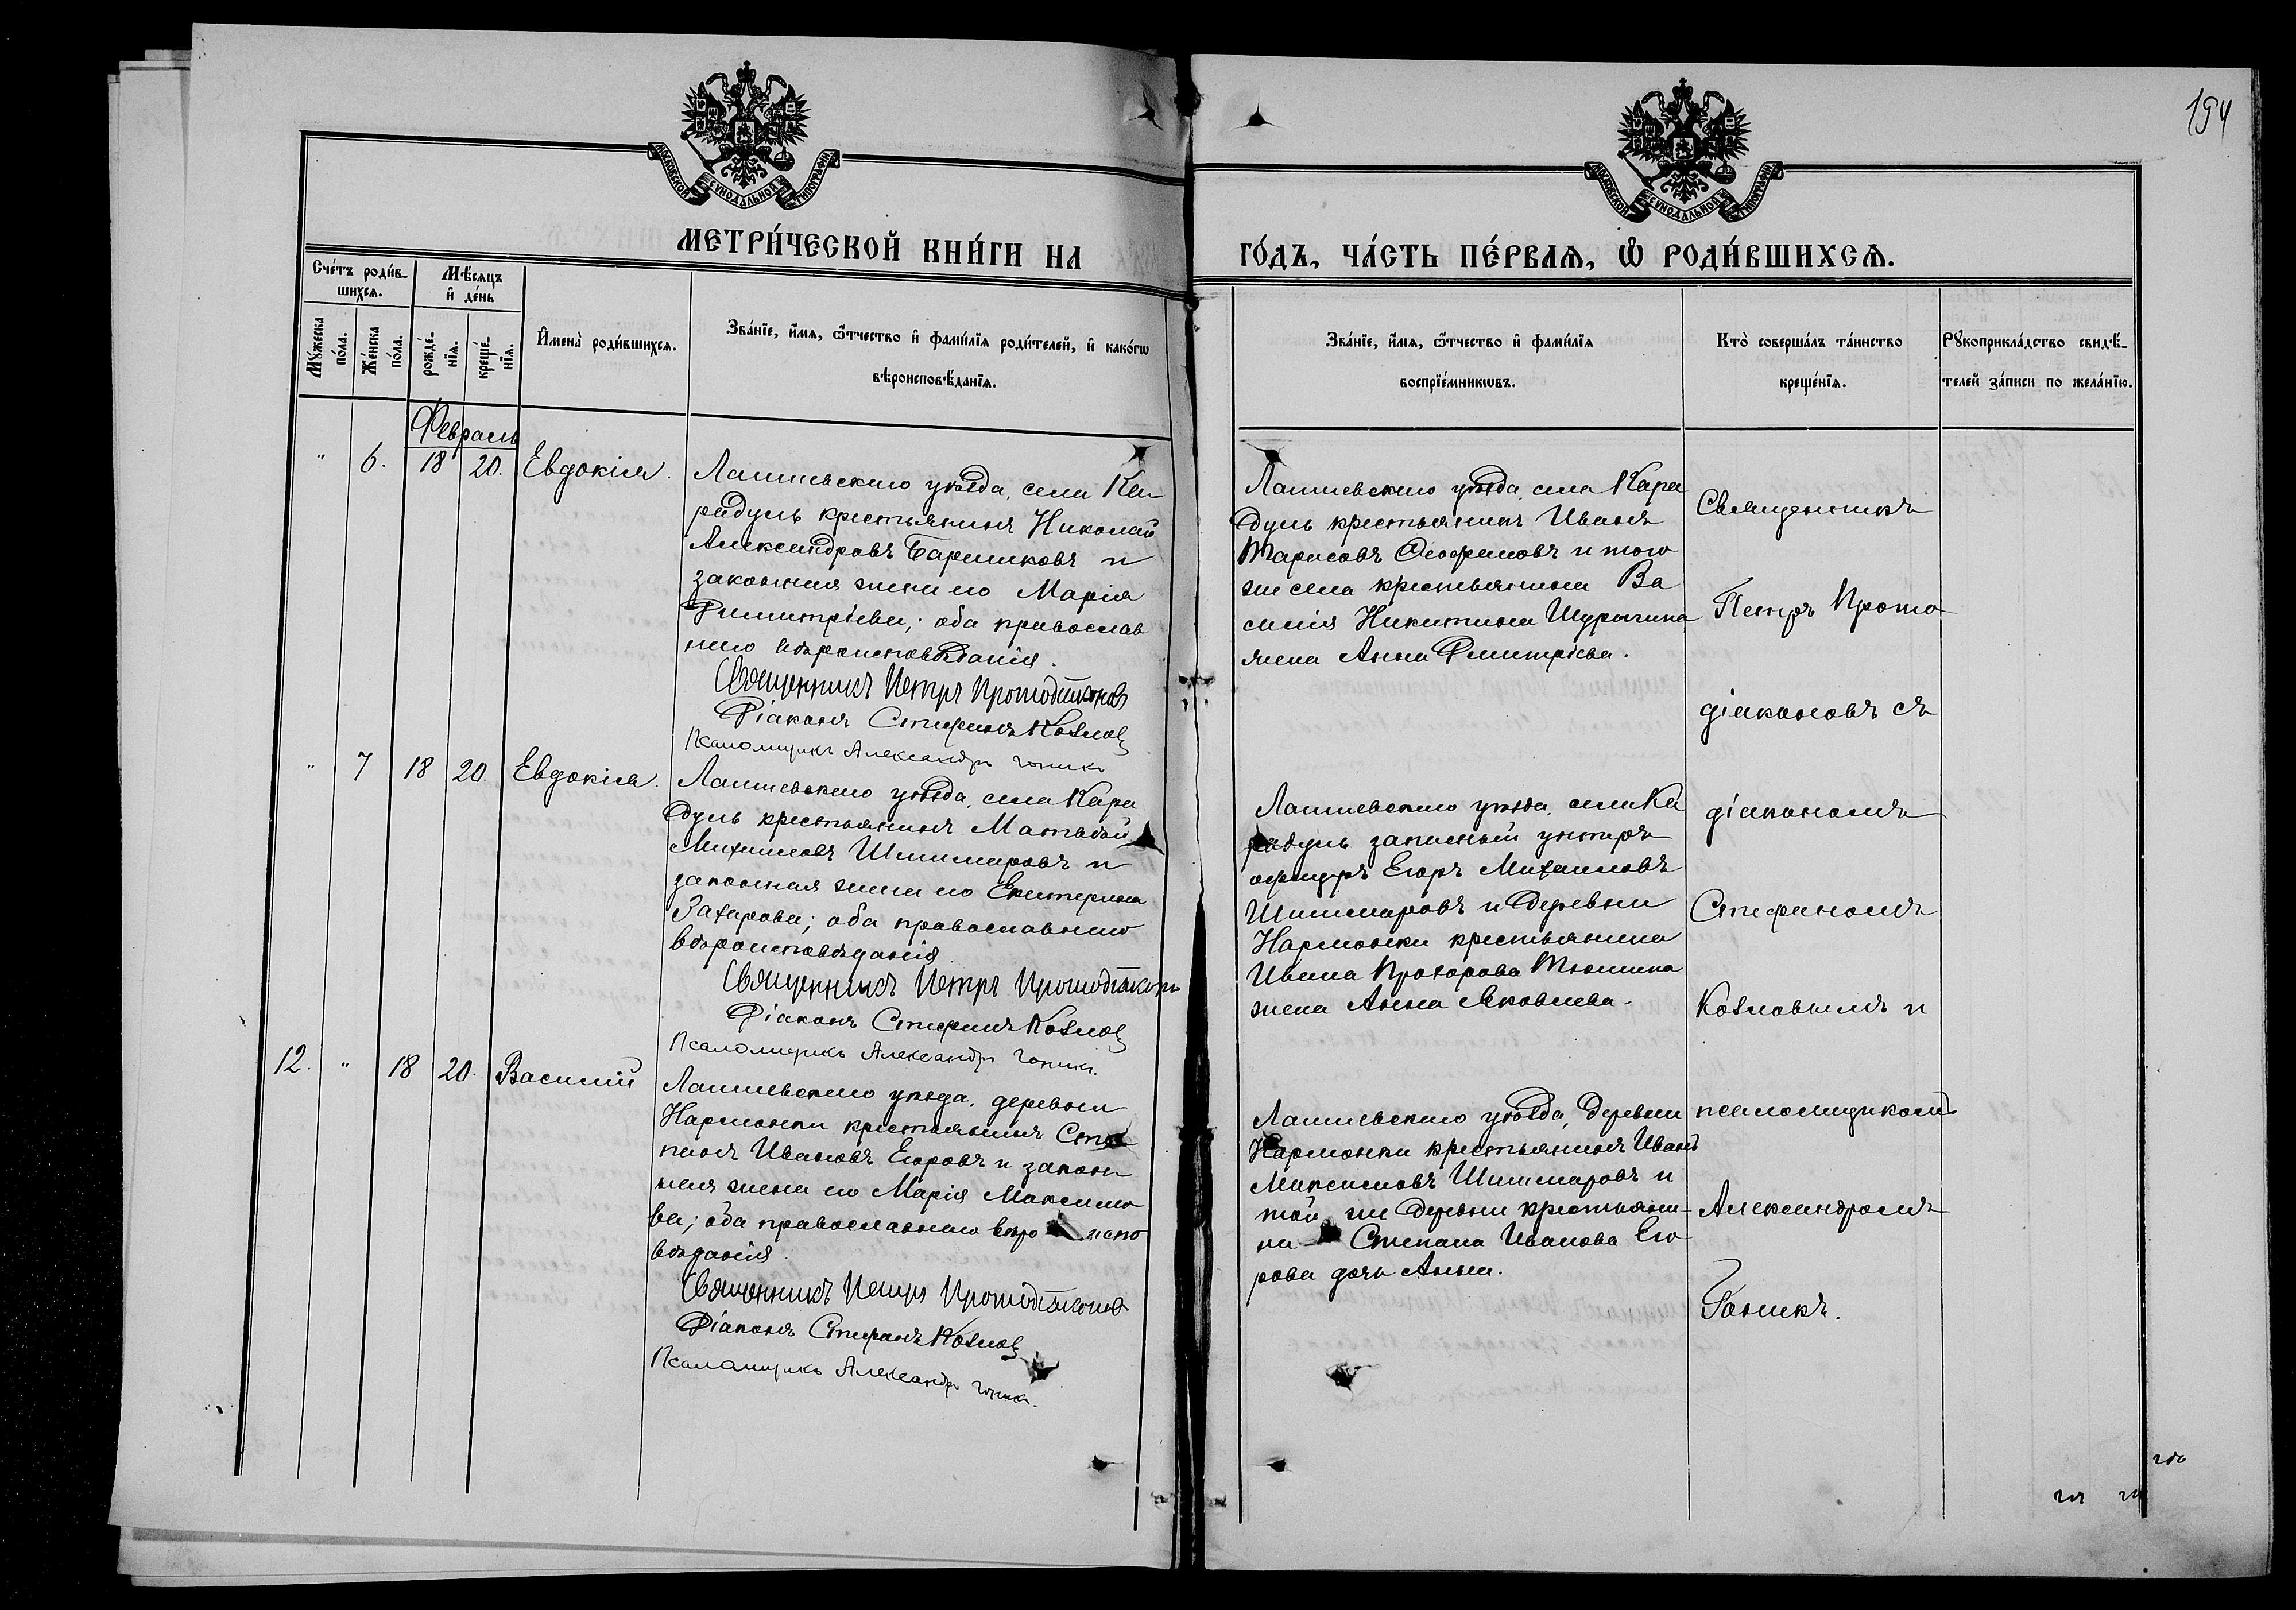 194
МОСКОВСКОЙ СѴНОДАЛЬНОЙ ТИПОГРАФІИ
МОСКОВСКОЙ СѴНОДАЛЬНОЙ ТИПОГРАФІИ
МЕТРИ́ЧЕСКОЙ КНИ́ГИ НА
ГО́ДЪ, ЧА́СТЬ ПЕ́РВАЯ, Ѽ РОДИ́ВШИХСЯ.
Сче́тъ роди́в-
шихся.
Мꙋ́жеска
по́ла.
Же́нска
по́ла.
Мѣ́сяцъ
и҆ де́нь
рожде́-
нїя.
креще́-
нїя.
И҆мена̀ роди́вшихся.
Зва́нїе, и҆́мя, ѻ҆́тчество и҆ фами́лїя роди́телей, и҆ како́гѡ
вѣроисповѣ́данїя.
Зва́нїе, и҆́мя, ѻ҆́тчество и҆ фами́лїя
воспрїе́мникѡвъ.
Кто̀ соверша́лъ та́инство
креще́нїя.
Рꙋкоприкла́дство свидѣ́-
телей за́писи по жела́нїю.
Февраль
" 6. 18 20. Евдокія.
Лаишевскаго уѣзда, села Ка
радуль крестьянинъ Николай
Александровъ Барышковъ и
законная жена его Марія
Димитріева; оба православ
наго вѣроисповѣданія.
Священникъ Петръ Протодіаконовъ
Діаконъ Стефанъ Козлов
Псаломщикъ Александръ Гоник
Лаишевскаго уѣзда, села Кара
дуль крестьянинъ Иванъ
Тарасовъ Ѳеофановъ и того
же села крестьянина Ва
силія Никитина Шурыгина
жена Анна Дмитріева.
" 7 18 20. Евдокія.
Лаишевскаго уѣзда, села Кара
дуль крестьянинъ Матвѣй
Михаиловъ Шишмаровъ и
законная жена его Екатерина
Захарова; оба православнаго
вѣроисповѣданія
Священникъ Петръ Протодіаконо
Діаконъ Стефанъ Козлов
Псаломщикъ Александръ Гоник.
Лаишевскаго уѣзда, села Ка
радуль запасный унтеръ
офицеръ Егоръ Михаиловъ
Шишмаровъ и деревни
Нармонки крестьянина
Ивана Прохорова
жена Анна Яковлева.
12. " 18 20. Василій
Лаишевскаго уѣзда, деревни
Нармонки крестьянинъ Сте
панъ Ивановъ Егоровъ и закон
ная жена его Марія Максимо
ва; оба православнаго вѣро испо
вѣданія
Священникъ Петръ Протодіаконов
Діаконъ Стефанъ Козлов
Псаломщикъ Александръ Гоник.
Лаишевскаго уѣзда, деревни
Нармонки крестьянинъ Иванъ
Максимовъ Шишмаровъ и
той же деревни крестьяни-
на Степана Иванова Его
рова дочь Анна.
Священникъ
Петръ Прото
діаконовъ съ
діакономъ
Стефаномъ
Козловымъ и
псаломщикомъ
Александромъ
Гоникъ.